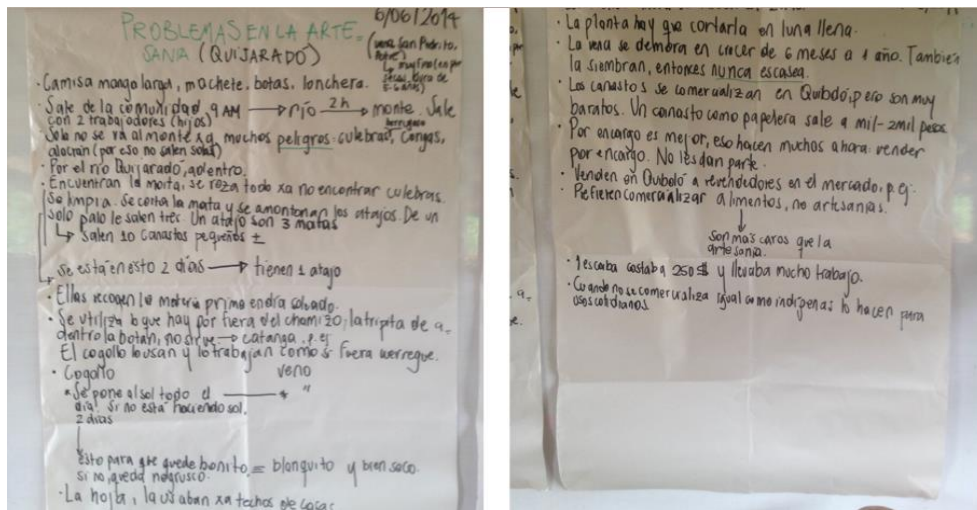 6/06/2014
PROBLEMAS EN LA ARTE-
SANIA (QUIJARADÓ)
(vena San Pedrito,
· Camisa manga larga, machete, botas, lonchera.
· Sale de la comunidad, 9 AM → río 2h → monte. Sale
con 2 trabajadores (hijos)
· Solo no se va al monte xa muchos peligros: culebras, congas,
alacrán (por eso no salen solas)
· Por el río Quijarado, adentro.
· Encuentran la mata, se reza todo xa no encontrar culebras.
Se limpia. Se corta la mata y se amontonan los atajos. De un
solo palo le salen tres. Un atajo son 3 matas
↳ Salen 10 canastos pequeños ±
se está en esto 2 días → tienen 1 atajo
· Ellas recogen la materia prima en día sábado.
· Se utiliza lo que hay por fuera del chamizo, la tripita de a-
dentro la botan, no sirve → catanga, p.ej
El cogollo lo usan y lo trabajan como si fuera werregue.
· Cogollo vena
* Se pone al sol todo el → * "
día. Si no está haciendo sol,
2 días
Esto para que quede bonito = blanquito y bien seco.
si no, queda negrusco.
· La hoja, la usaban xa techos de casas
· La planta hay que cortarla en luna llena.
· La vena se demora en crecer de 6 meses a 1 año. También
la siembran, entonces nunca escasea.
· Los canastos se comercializan en Quibdó, pero son muy
baratos. Un canasto como papelera sale a mil - 2mil pesos.
· Por encargo es mejor, eso hacen muchos ahora: vender
por encargo. No les dan parte.
· Venden en Quibdó a revendedores en el mercado, p.ej.
· Prefieren comercializar alimentos, no artesanías.
↓
son más caros que la
artesanía.
· 1 escoba costaba 250$ y llevaba mucho trabajo.
· Cuando no se comercializa igual como indígenas lo hacen para
usos cotidianos